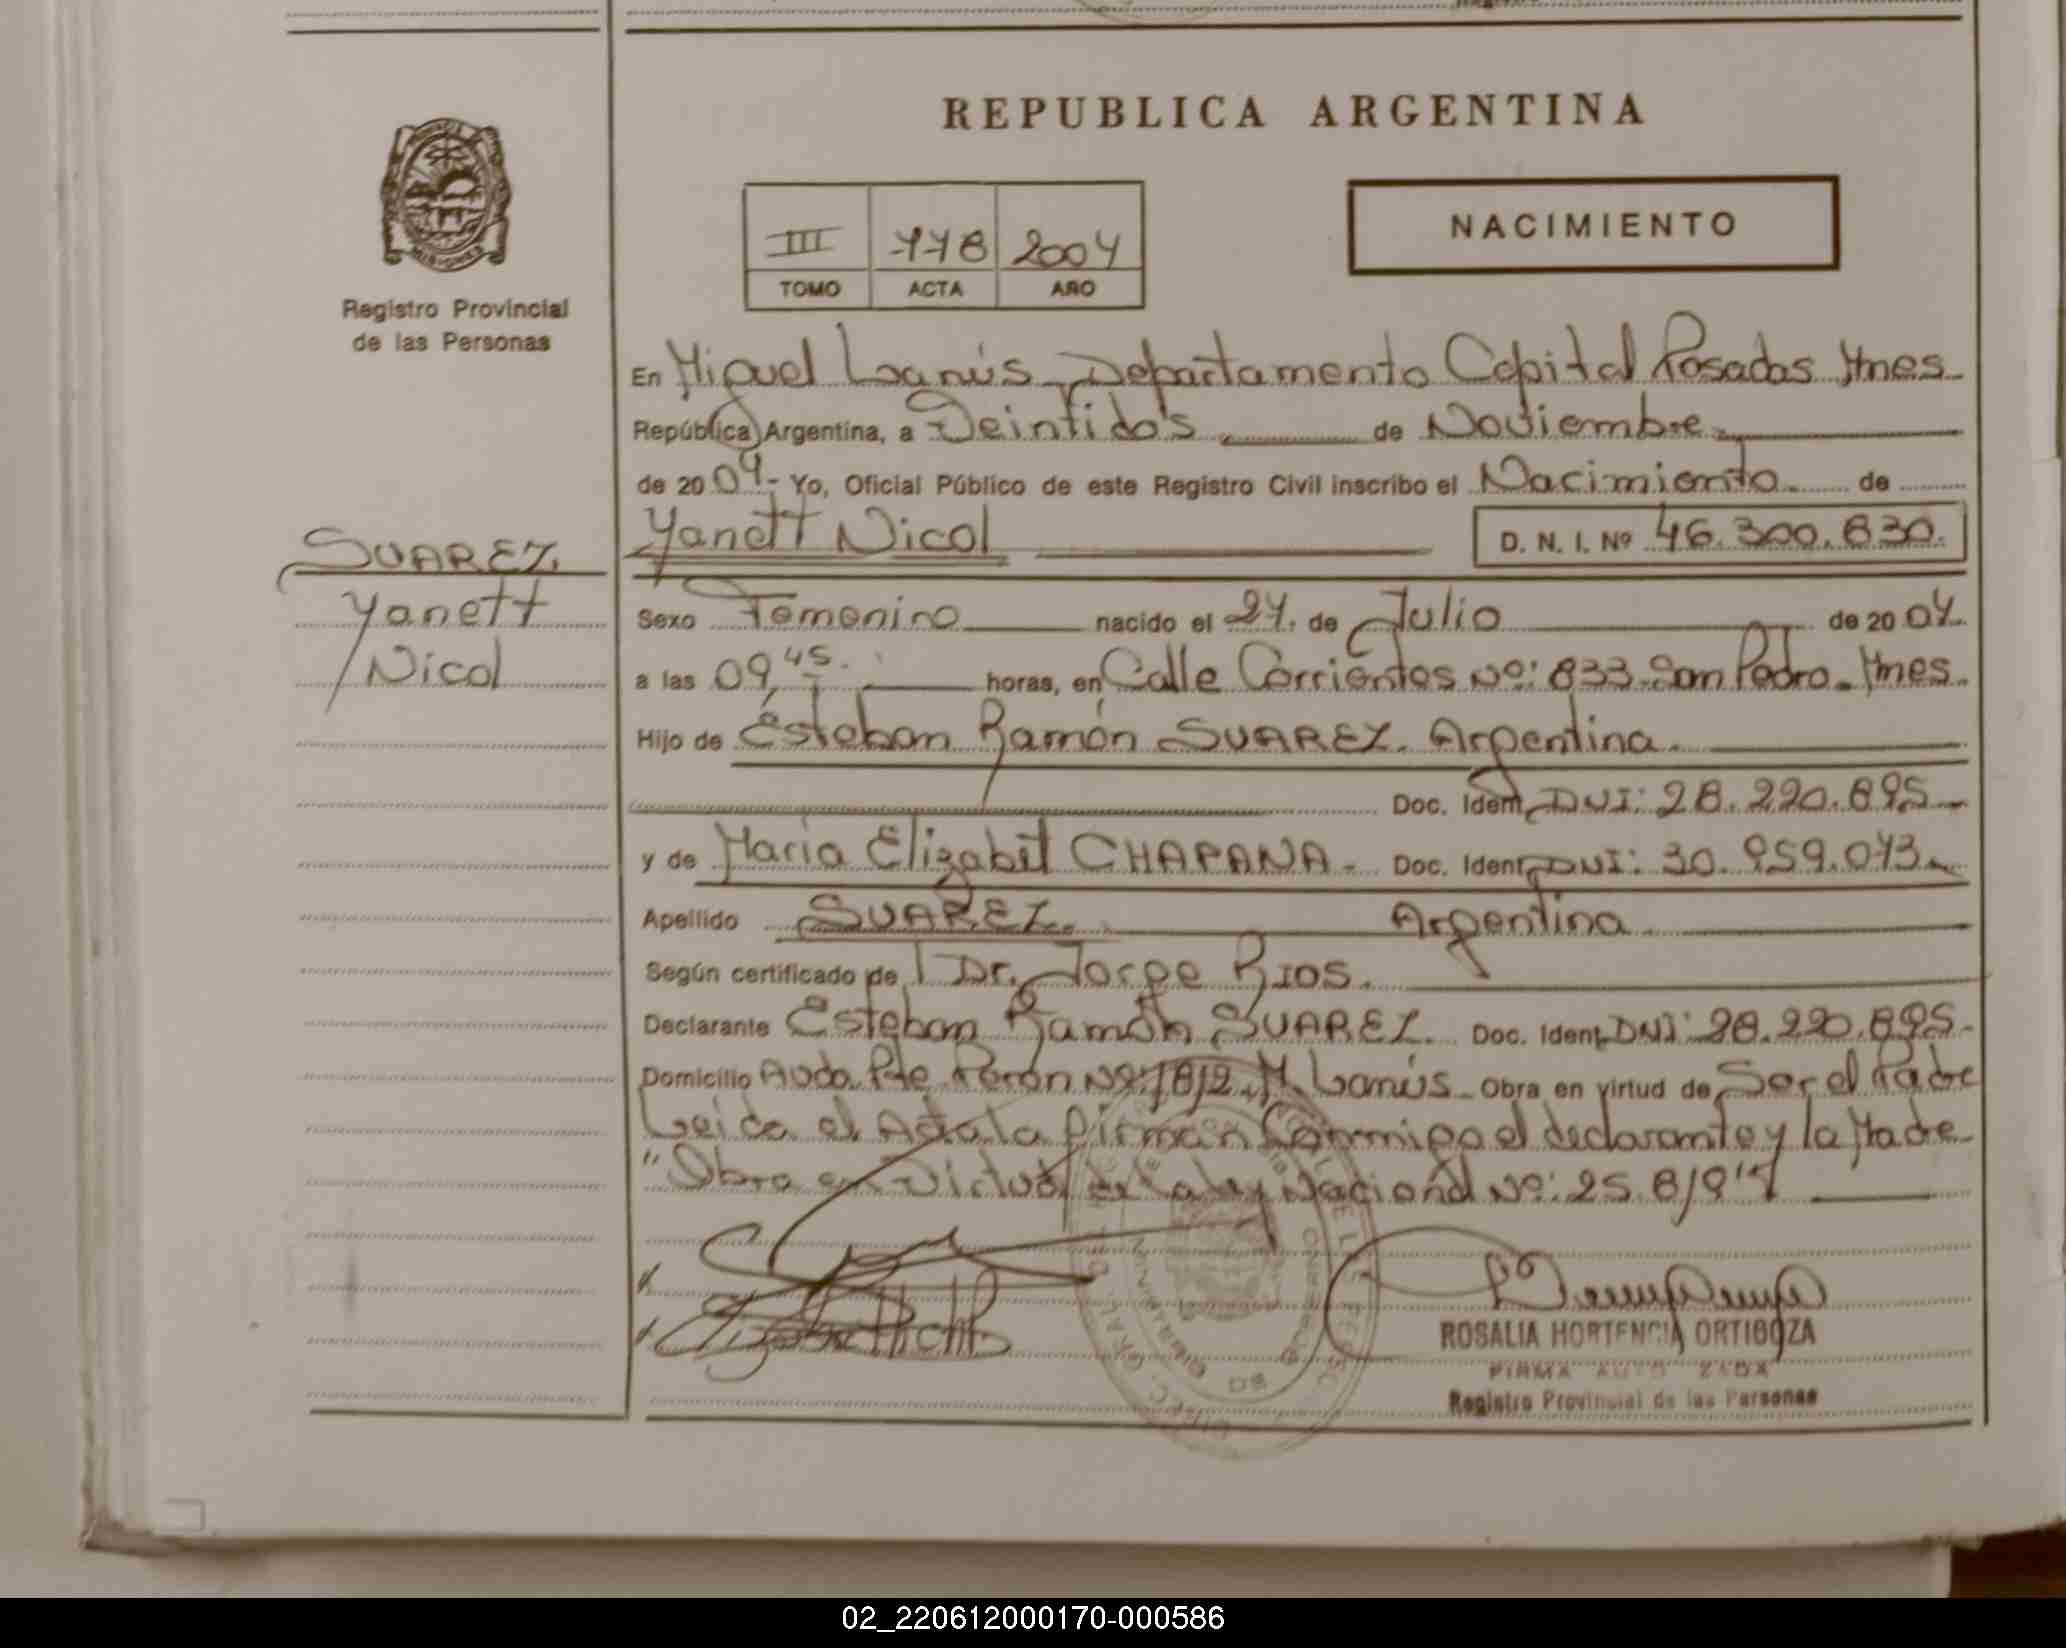 REPUBLICA ARGENTINA
NACIMIENTO
III 778 2004
TOMO ACTA AÑO
Registro Provincial
de las Personas
En Miguel Lanús Departamento Capital Posadas Mnes
República Argentina, a Veintidós de Noviembre
de 2004- Yo, Oficial Público de este Registro Civil inscribo el Nacimiento de
Yanett Nicol D. N. I. Nº 46.300.830.
SUAREZ
Yanett
Nicol
Sexo Femenino nacido el 27. de Julio de 2004.
a las 09,45. horas, en Calle Corrientes Nº: 833 San Pedro. Mnes.
Hijo de Esteban Ramón SUAREZ. Argentina.
Doc. Ident. DNI: 28.220.895
y de María Elizabit CHAPANA- Doc. Ident. DNI: 30.959.073
Apellido SUAREZ. Argentina
Según certificado de Dr. Jorge Rios.
Declarante Esteban Ramón SUAREZ. Doc. Ident. DNI: 28.220.895-
Domicilio Avda. Pte Perón Nº: 7812. M. Lanús- Obra en virtud de Ser el Padre
Leida el Acta la firman Conmigo el declarante y la Madre
"Obra en Virtud de la Ley Nacional Nº: 25.819"
ROSALIA HORTENCIA ORTIGOZA
FIRMA AUTORIZADA
Registro Provincial de las Personas
02_220612000170-000586